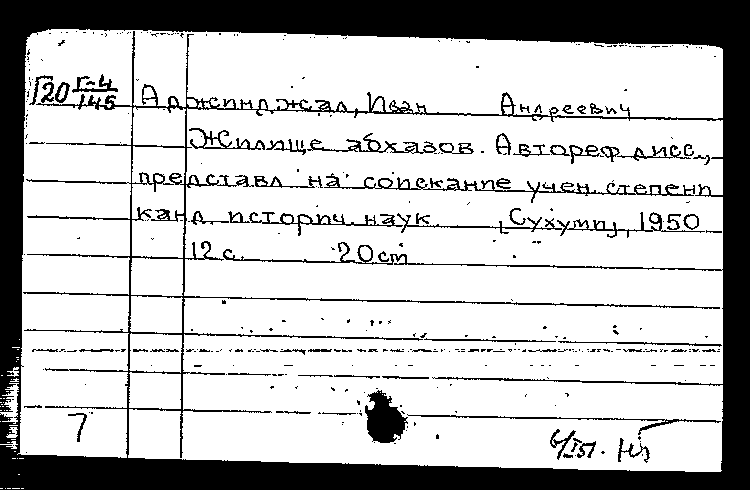 Г20 Г-4/145 Аджинджал, Иван Андреевич
Жилище абхазов. Автореф дисс.,
представл на соискание учен. степени
канд. историч. наук. [Сухуми], 1950
12 с. 20 см
7